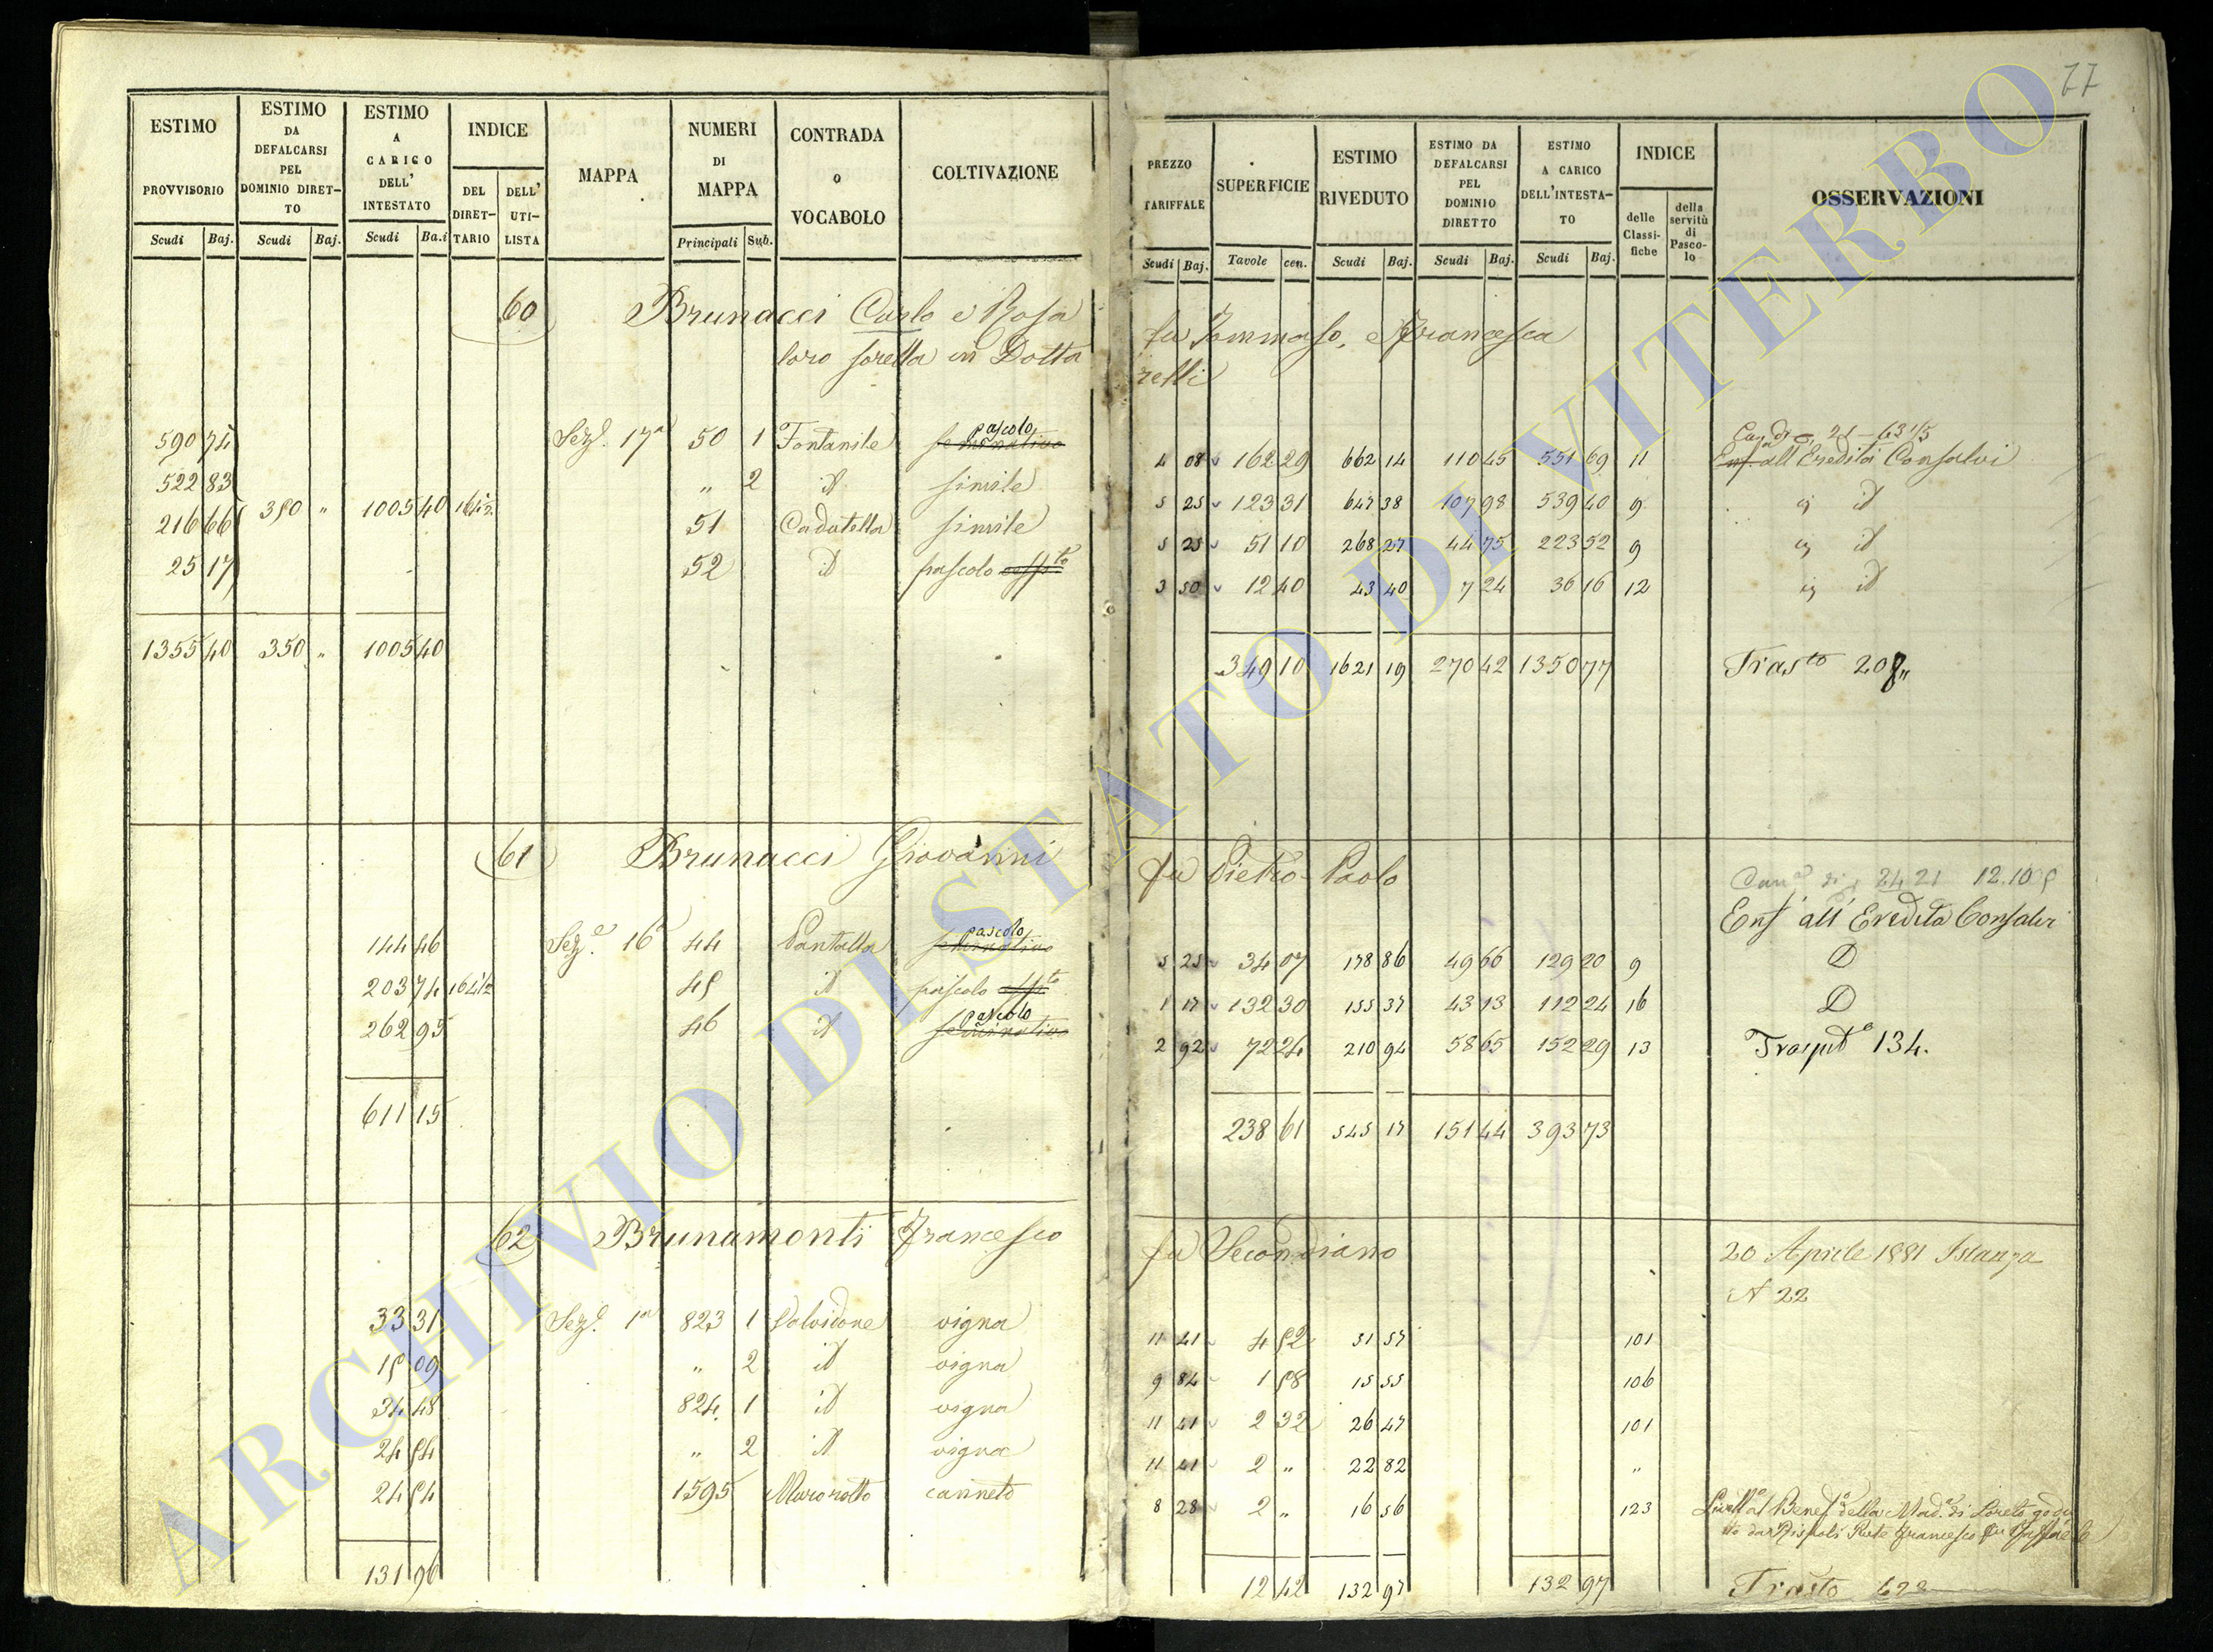 77
ESTIMO PROVVISORIO
ESTIMO DA DEFALCARSI PEL DOMINIO DIRET-TO
ESTIMO A CARICO DELL' INTESTATO
INDICE
DEL DIRET-TARIO
DELL' UTI-LISTA
MAPPA
NUMERI DI MAPPA
CONTRADA o VOCABOLO
COLTIVAZIONE
Scudi Baj. Scudi Baj. Scudi Ba.i Principali Sub.
PREZZO TARIFFALE
SUPERFICIE
ESTIMO RIVEDUTO
ESTIMO DA DEFALCARSI PEL DOMINIO DIRETTO
ESTIMO A CARICO DELL'INTESTA-TO
INDICE
delle Classi-fiche
della servitù di Pasco-lo
OSSERVAZIONI
Scudi Baj. Tavole cen. Scudi Baj. Scudi Baj. Scudi Baj.
60 Brunacci Carlo e Rosa fu Tommaso, e Francesca
loro sorella in Dotta
relli
590 74 Sez.e 17a 50 1 Fontanile pascolo seminativo 4 08 162 29 662 14 110 45 551 69 11 all Eredità Consalvi
522 83 " 2 id simile 5 25 123 31 647 38 107 98 539 40 9 id
216 66 350 " 1005 40 51 Cadutella simile 5 25 51 10 268 27 44 75 223 52 9 id
25 17 52 id pascolo 3 50 12 40 43 40 7 24 36 16 12 id
1355 40 350 " 1005 40 349 10 1621 19 270 42 1350 77 Trasto 208
61 Brunacci Giovanni fu Pietro Paolo
24 21 12.10
Enf all' Eredità Consalvi
144 46 Sez.e 16a 44 Pantalla pascolo seminativo 5 25 34 07 178 86 49 66 129 20 9 D
203 74 45 id pascolo 1 17 132 30 155 37 43 13 112 24 16 D
262 95 46 id pascolo seminativo 2 92 72 24 210 94 58 65 152 29 13 134.
611 15 238 61 545 17 151 44 393 73
62 Brunamonti Francesco fu Secondiano 20 Aprile 1881 Istanza
N 22
33 31 Sez.e 1a 823 1 Valvidone vigna 11 41 4 52 51 57 101
15 09 " 2 id vigna 9 84 1 58 15 55 106
34 48 824 1 id vigna 11 41 2 32 26 47 101
24 54 " 2 id vigna 11 41 2 " 22 82 "
24 54 1595 Murorotto canneto 8 28 2 " 16 56 123 Livell.o al Benef.o della Mad.a di Loreto godu
to da Rispoli Francesco fu Raffaele
131 96 12 42 132 97 132 97 Trasto 622
ARCHIVIO DI STATO DI VITERBO